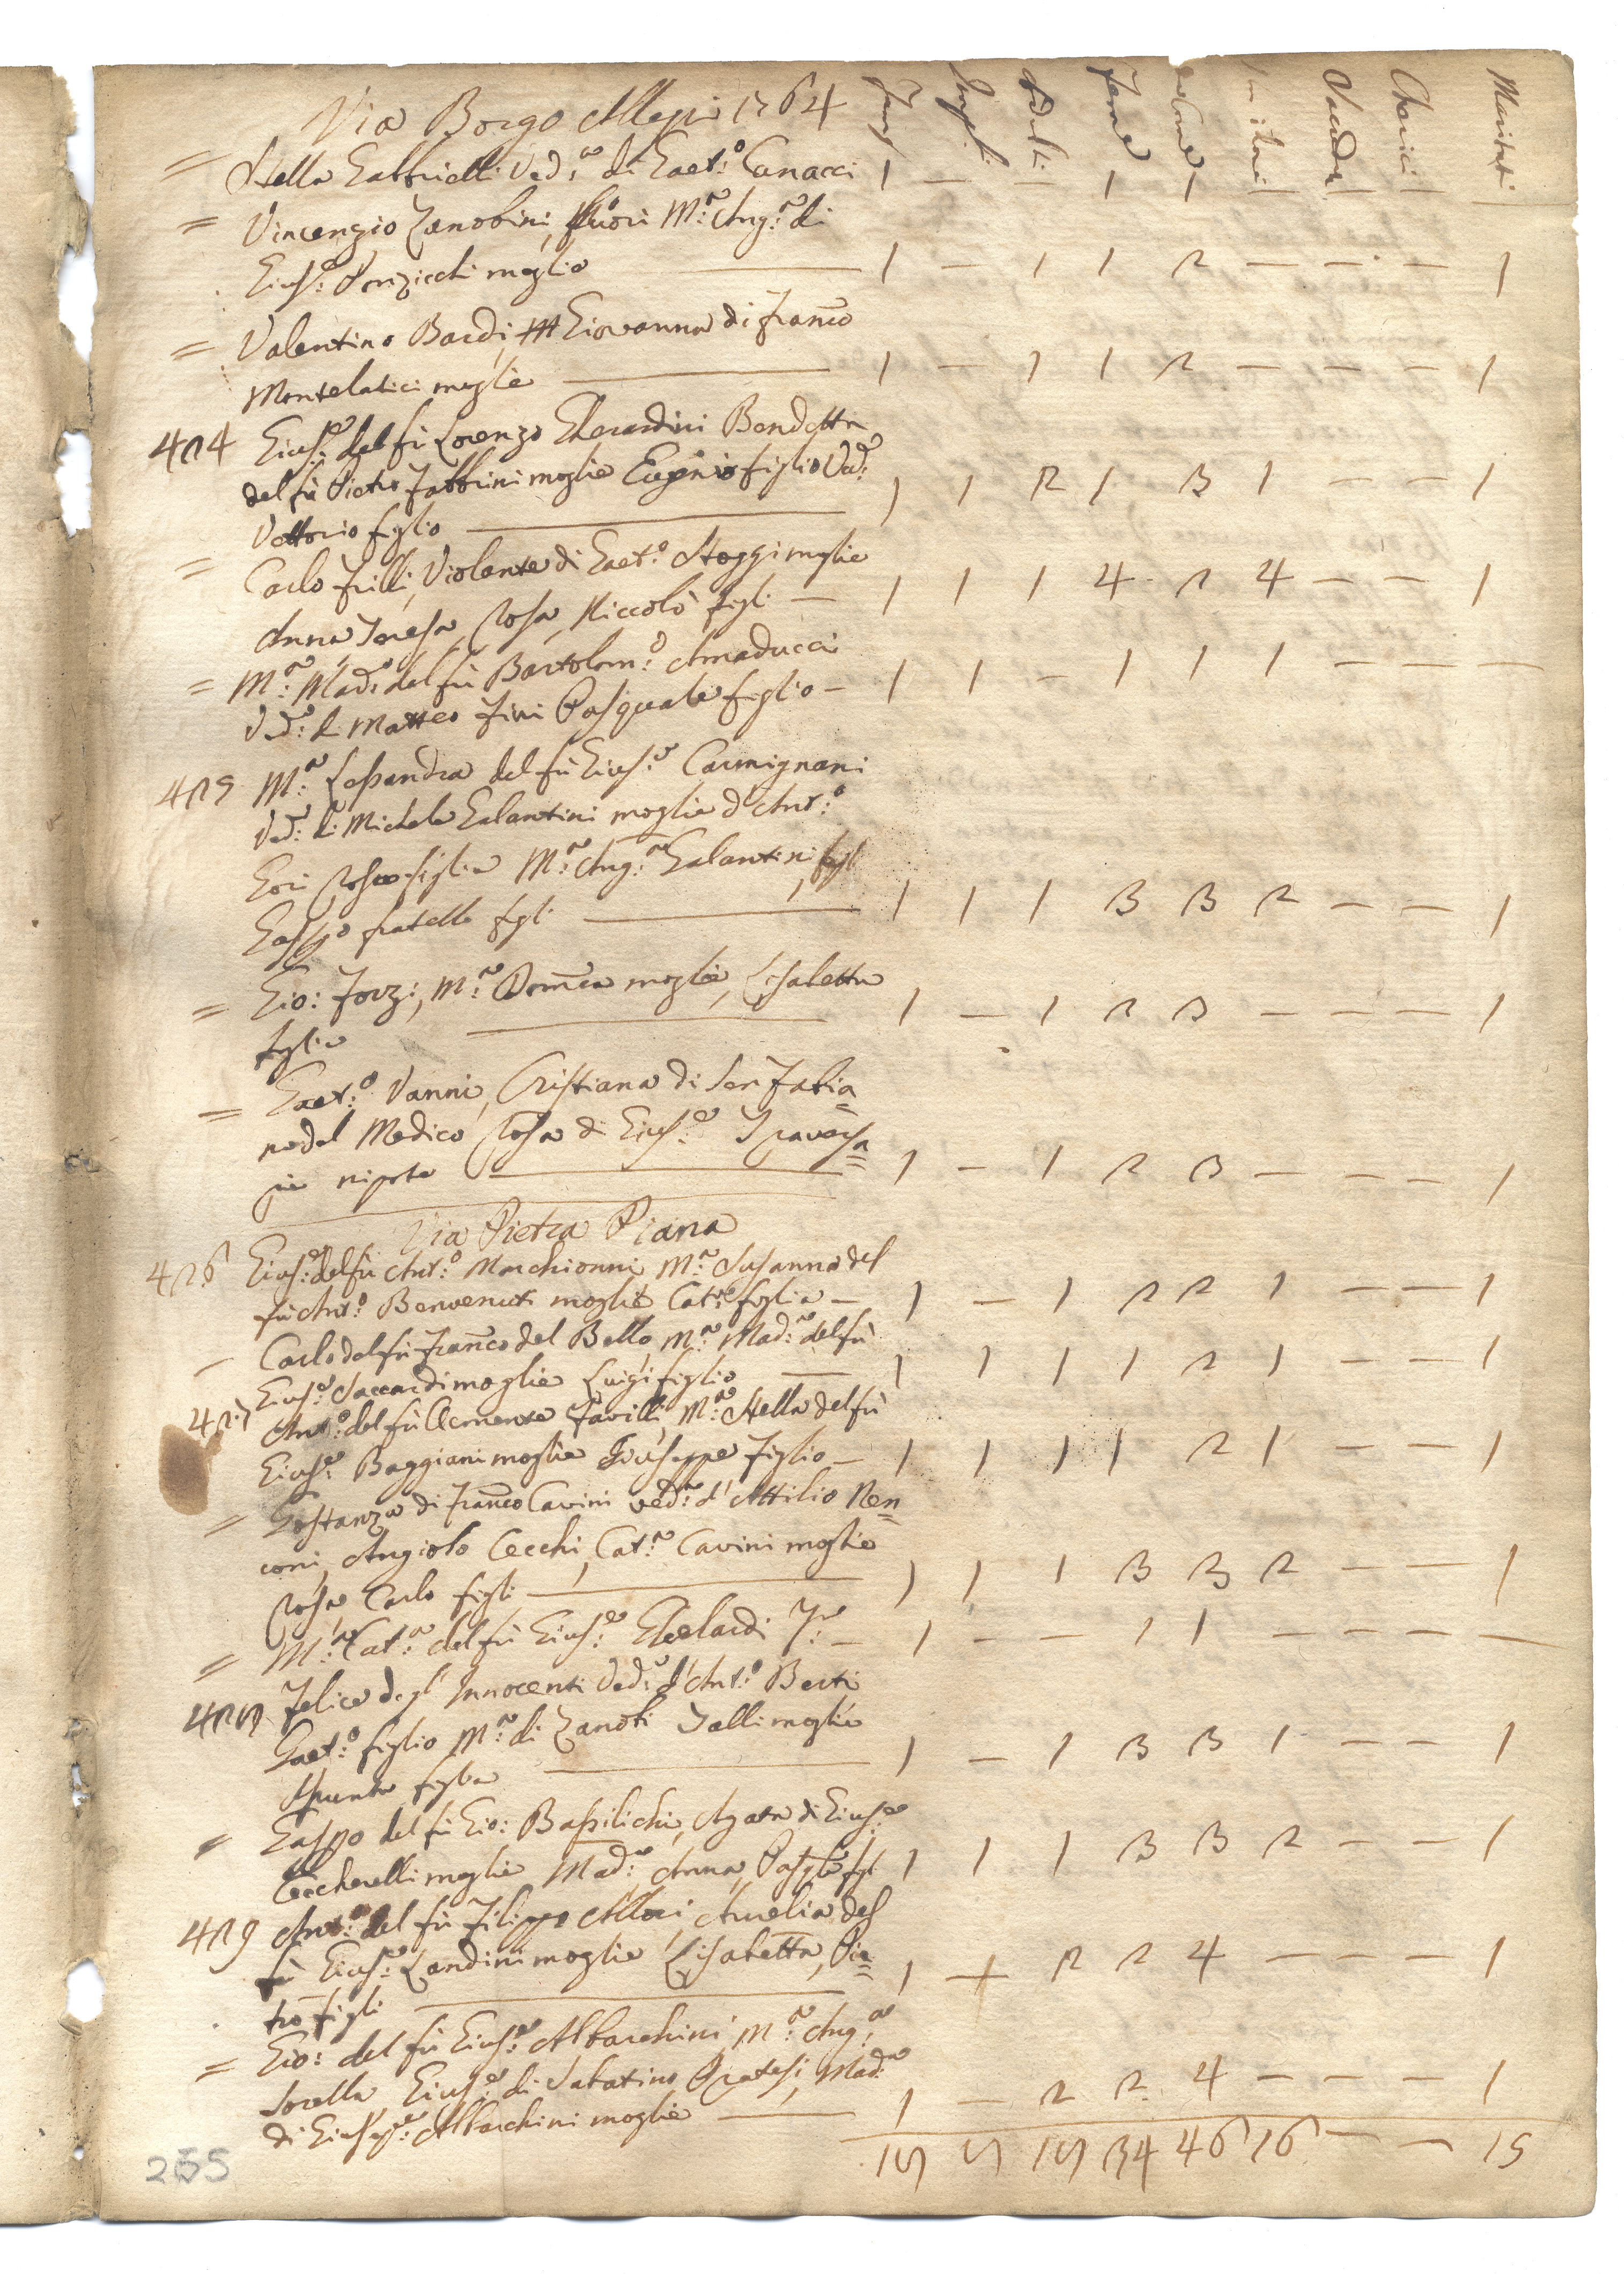 Via Borgo Allegri 1764 Fami Impub Adulti Femine Vacadr Cherici Maritati
= Stella Gabbrielli Ved:a di Gaet:o Canacci 1 — — 1 1
= Vincenzio Zanobini, M:a Ang:a di
Gius:e moglie 1 — 1 1 2 — — — 1
= Valentino Bardi, Giovanna di Fran͞co
Montelatici moglie 1 — 1 1 2 — — — 1
424 Gius:e del fù Lorenzo Gherardini Bendetta
del fù Pietro Fabbrini moglie Eugenio figlio Ved:
Vettorio figlio 1 1 2 1 3 1 — — 1
= Carlo Frilli, Violante di Gaet:o Stoggi moglie
Anna Teresa, Rosa, Niccolò figli — 1 1 1 4 2 4 — — 1
= M:a Mad:a del fù Bartolom:o Amaducci
Ved:a di Matteo Fini Pasquale figlio — 1 1 — 1 1 1 — — —
425 M:a Lessandra del fù Gius:e Carmignani
Ved:a di Michele Galantini moglie d'Ant:o
Gori Rosa figlia M:a Ang:a Galantini, figl
Gasp͞o fratello figli 1 1 1 3 3 2 — — 1
= Gio: Forzi, M:a Dom͞ca moglie, Lisabetta
figlia 1 — 1 2 3 — — — 1
= Gaet:o Vanni, Cristiana di Ser Fabia=
no del Medico Rosa di Gius:e Traversa=
gni nipote 1 — 1 2 3 — — — 1
Via Pietra Piana
426 Gius:e del fù Ant:o Marchionni M:a Susanna del
fù Ant:o Benvenuti moglie Cat:a figlia — 1 — 1 2 2 1 — — 1
— Carlo del fù Fran͞co del Bello M:a Mad:a del fù
Gius:e Saccardi moglie Luigi figlio — 1 1 1 1 2 1 — — 1
427 Ant:o del fù Clemente Favilli, M:a Stella del fù
Gius:e Baggiani moglie Giuseppe figlio — 1 1 1 1 2 1 — — 1
= Gostanza di Fran͞co Cavini ved:a d'Attilio Nen=
coni, Angiolo Cecchi, Cat:a Cavini moglie
Rosa Carlo figli 1 1 1 3 3 2 — — 1
= M:a Cat:a del fù Gius:e — 1 — — 1 1 — — — —
428 Felice degl'Innocenti Ved:a d'Ant:o Berti
Gaet:o figlio M:a di Zanobi Galli moglie
Assunta figlia 1 — 1 3 3 1 — — 1
= Gasp͞o del fù Gio: Bassilichi, Agata di Gius:e
Ceccherelli moglie Mad:a Anna, Pasq͞le figl 1 1 1 3 3 2 — — 1
429 Ant:o del fù Filippo Allori, Aurelia del
fù Gius:e Landini moglie Lisabetta, Pie=
tro figli 1 — 2 2 4 — — — 1
= Gio: del fù Gius:e Albarchini, M:a Ang:a
sorella Gius:e di Sabatino Pratesi, Mad:a
di Gius:e Albarchini moglie — 1 — 2 2 4 — — — 1
17 7 17 34 46 16 — — 15
255